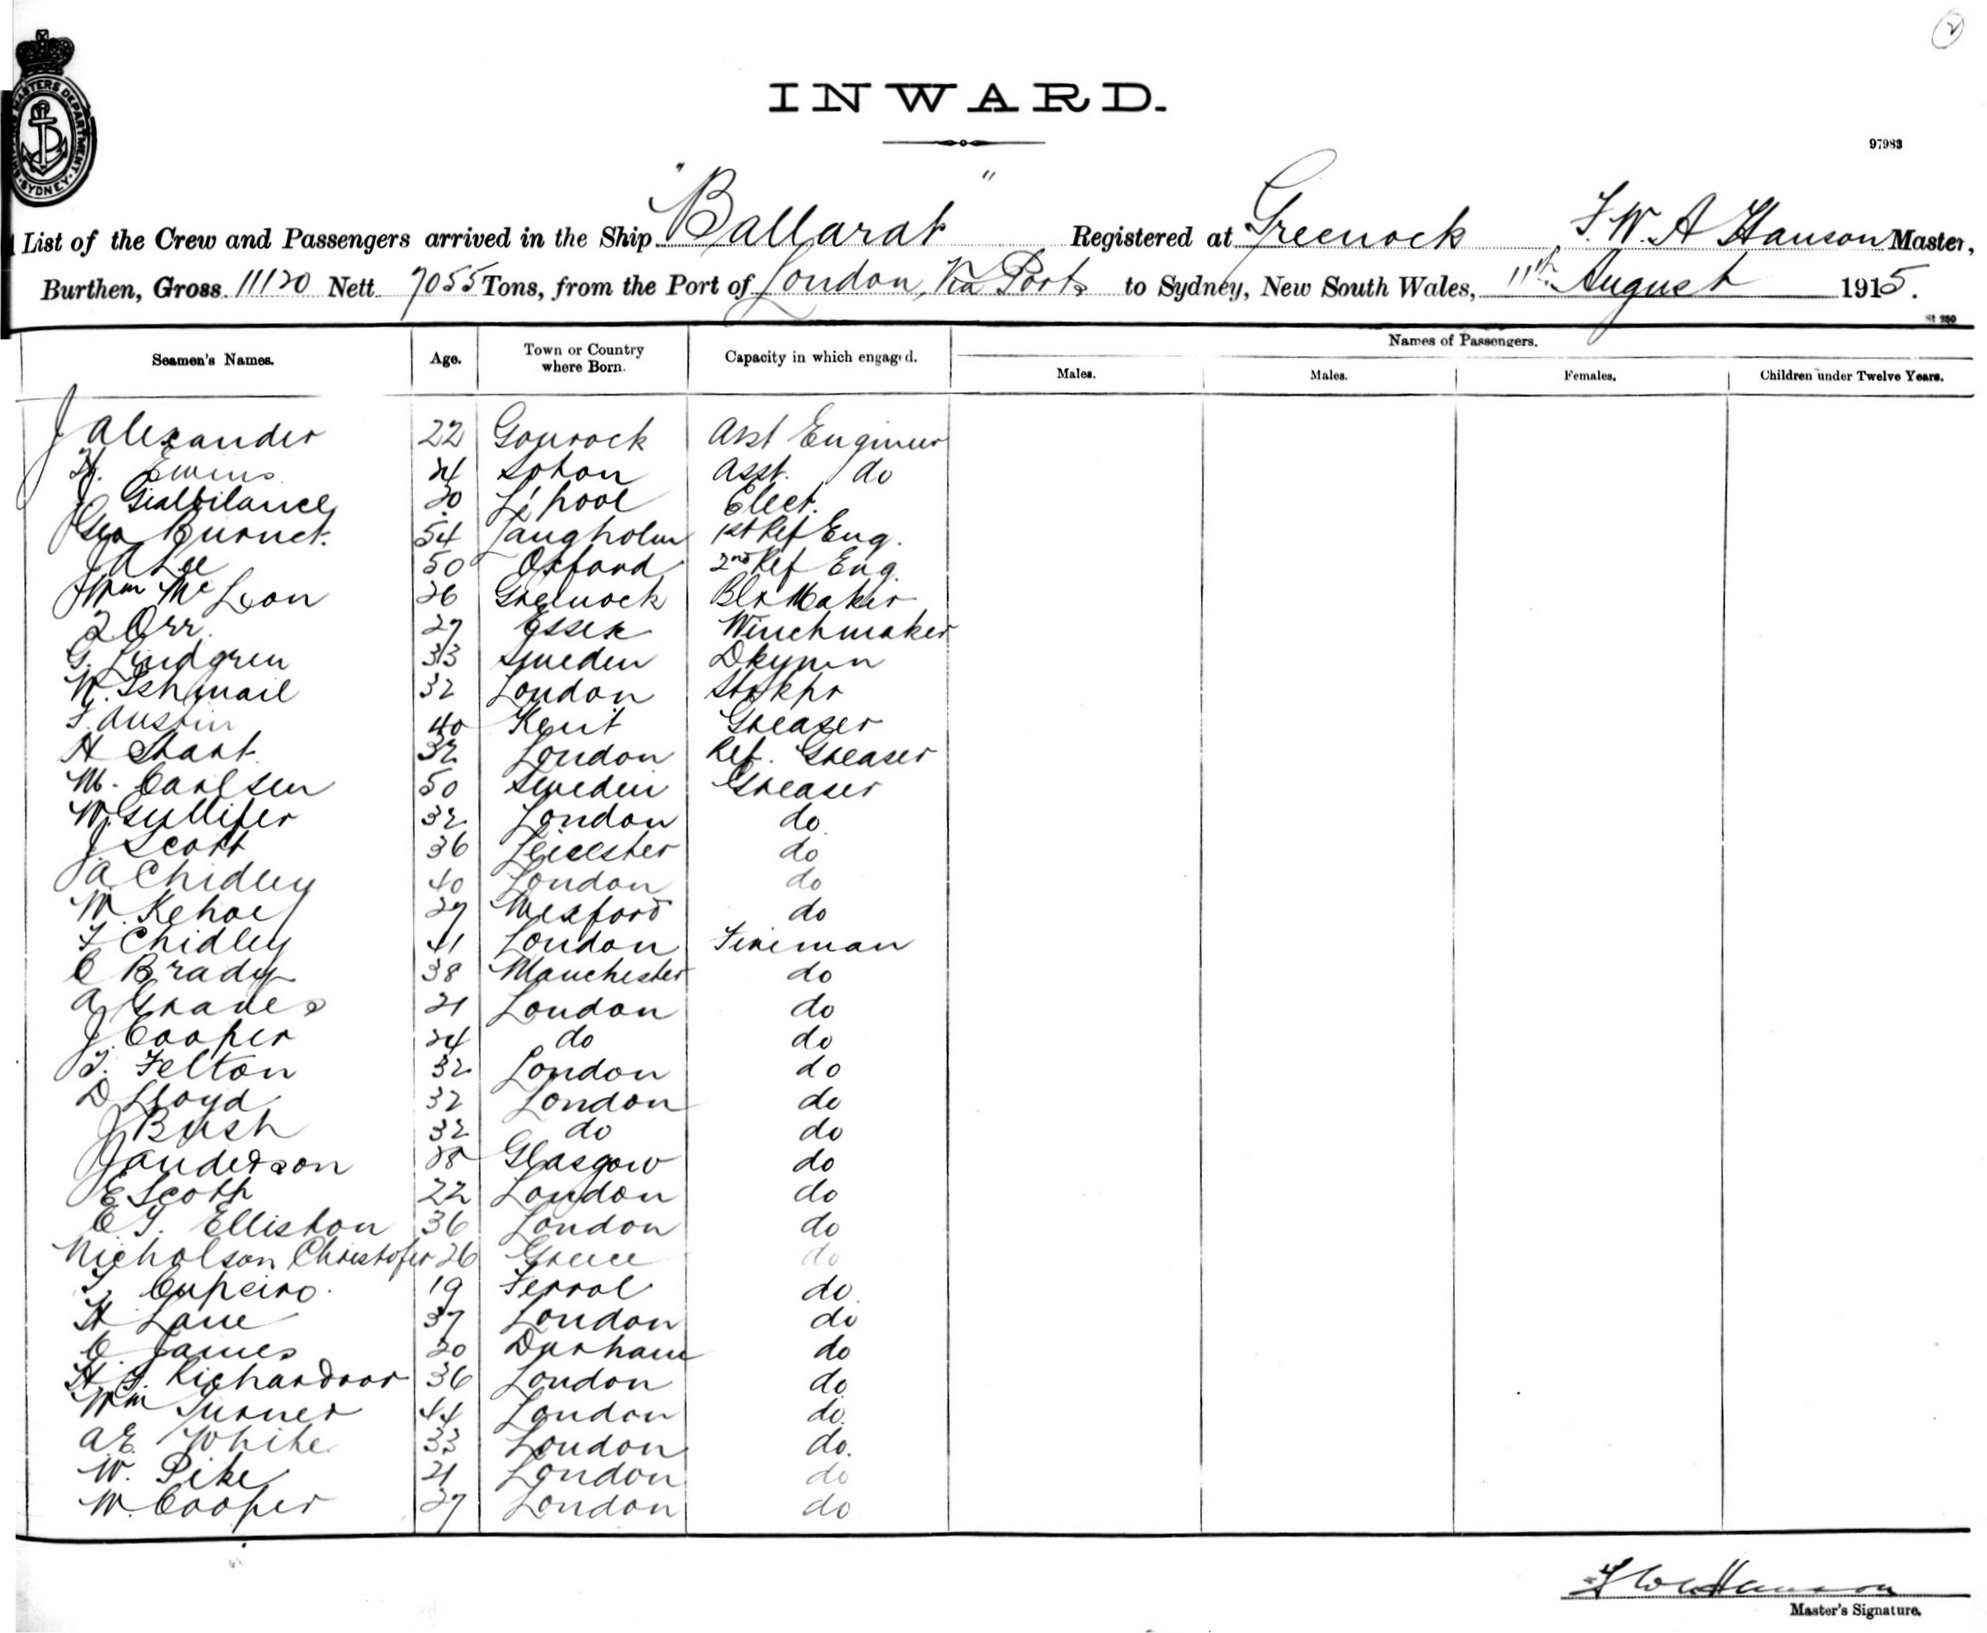 2
INWARD.
97983
SHIPPING MASTERS DEPARTMENT · SYDNEY ·
List of the Crew and Passengers arrived in the Ship "Ballarat" Registered at Greenock F. W. A Hanson Master,
Burthen, Gross 11120 Nett 7055 Tons, from the Port of London, Via Ports to Sydney, New South Wales, 11th August 1915.
St 260
Seamen's Names. Age. Town or Country where Born. Capacity in which engaged. Names of Passengers.
Males. Males. Females. Children under Twelve Years.
J Alexander 22 Gourock Asst Engineer
H. Ewins 24 Soton Asst. do
J 30 L'pool Elect.
Geo Burnet. 54 Langholm 1st Ref Eng.
J A Lee 50 Oxford 2nd Ref Eng.
Wm Mc Leon 26 Greenock Blr Maker
Orr. 27 Essex Winchmaker
G. Lindgren 33 Sweden Dkymn
N. Ishmail 32 London Strkpr
F. Austin 40 Kent Greaser
H Shart 32 London Ref. Greaser
M. Carlsen 50 Sweden Greaser
W. Gullifer 32 London do
J Scott 36 Leicester do
A Chidley 40 London do
W. Kehoe 27 Wexford do
F Chidley 41 London Fireman
C Brady 38 Manchester do
A Graves 21 London do
J. Cooper 24 do do
T. Felton 32 London do
D Lloyd 32 London do
J Bush 32 do do
J Anderson 28 Glasgow do
E Scott 22 London do
C T. Elliston 36 London do
Nicholson Christofer 26 Greece do
J. Cupeiro. 19 Ferrol do.
H Lane 37 London do
C. James 20 Durham do
H J. Richardson 36 London do
Wm Turner 44 London do.
A E White 33 London do.
W. Pike 21 London do
W. Cooper 27 London do
F W A Hanson
Master's Signature.